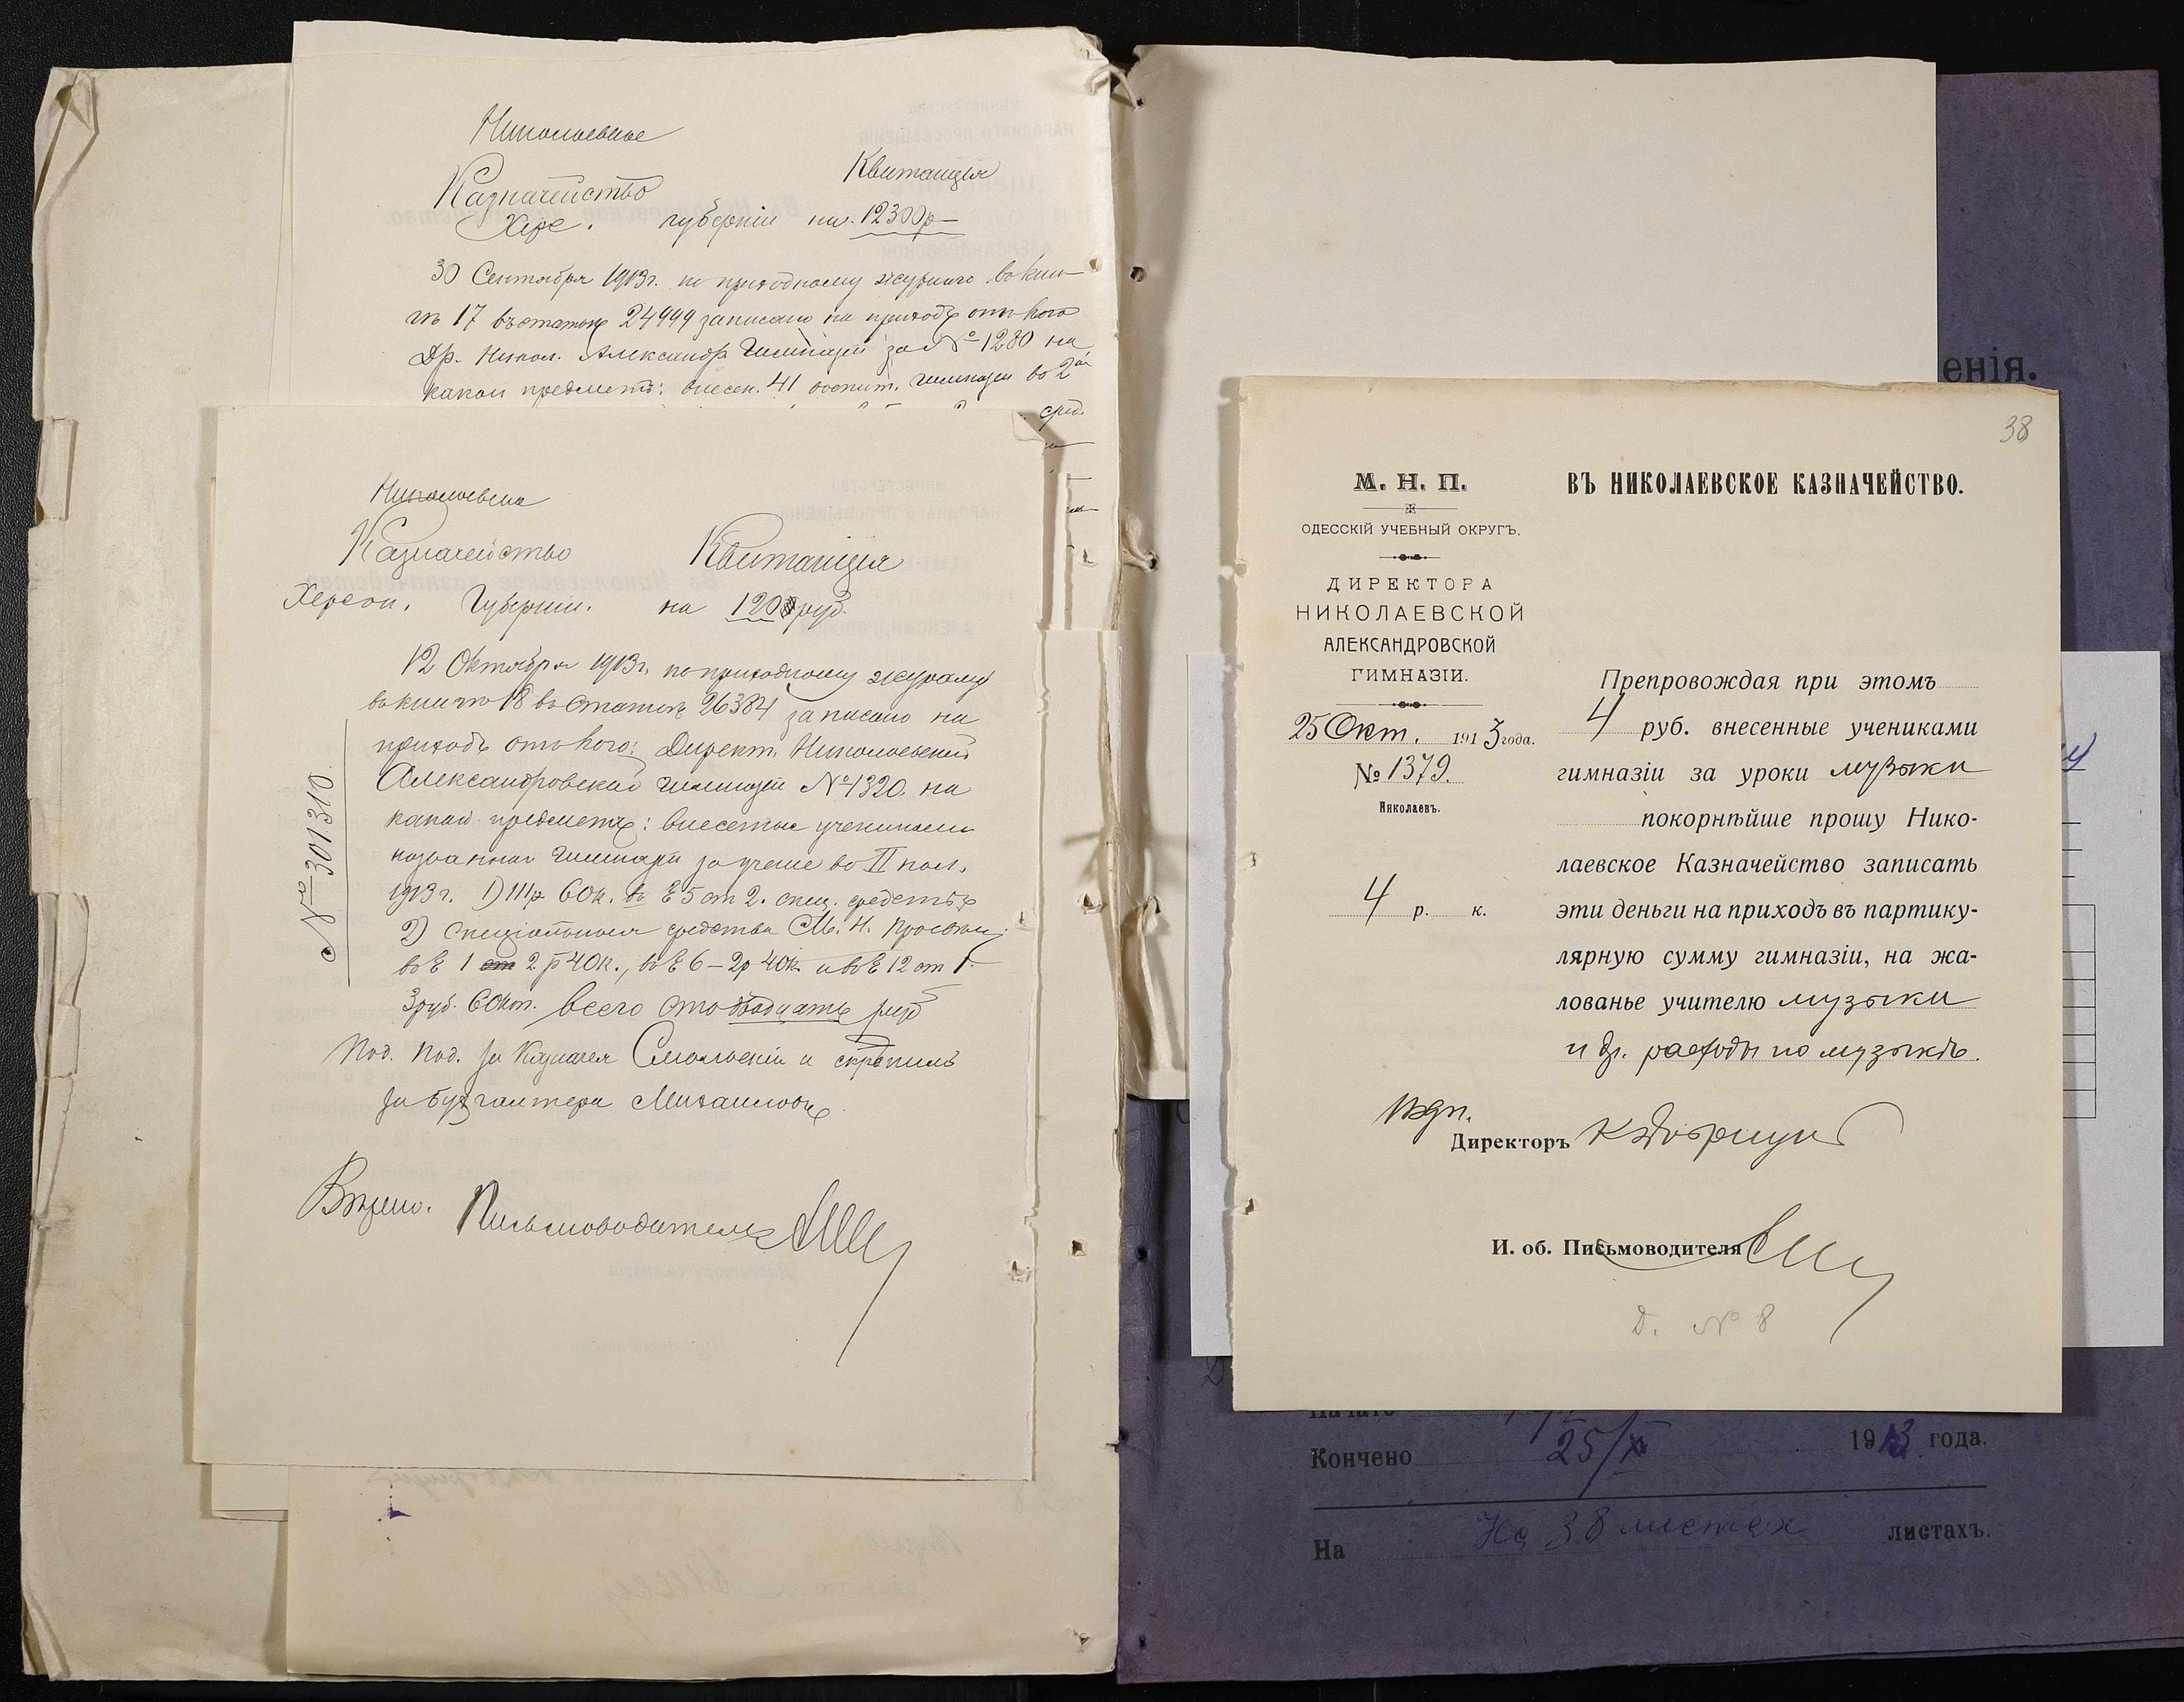 Николаевское
Казначейство
Квитанція
Херс. губерніи на 12300р
30 Сентября 1913г. по приходному журналу въ кни-
гѣ 17 въ статьѣ 24999 записано на приходъ отъ кого
Др. Никол. Александр Гимназіи за № 1280 на
какой предметъ: внесен. 41 воспит. гимназіи во 2ой
сред.
Николаевское
Казначейство
Квитанція
Херсон. Губерніи. на 120 руб.
12 Октября 1913г. по приходному журналу
въ книгѣ 18 въ статьѣ 26384 записано на
приходъ отъ кого: Директ. Николаевской
Александровской гимназіи № 1320. на
какой предметъ: внесенные учениками
названной гимназіи за ученіе во II пол.
1913 г. 1) 111р 60к. въ § 5 ст 2. спец. средствъ
2) Спеціальныя средства М. Н. Просвѣщ.
въ § 1 2р 40к., въ § 6 – 2р 40к и въ § 12 ст 1.
3 руб. 60коп. всего сто двадцать руб
Под. Под. за Казначея и скрѣпилъ
за бухгалтера Михайловъ
№ 301310.
Вѣрно. Письмоводитель
енія.
38
М. Н. П.
ОДЕССКІЙ УЧЕБНЫЙ ОКРУГЪ.
ДИРЕКТОРА
НИКОЛАЕВСКОЙ
АЛЕКСАНДРОВСКОЙ
ГИМНАЗІИ.
25 Окт. 1913 года.
№ 1379.
Николаевъ.
4 р. к.
ВЪ НИКОЛАЕВСКОЕ КАЗНАЧЕЙСТВО.
Препровождая при этомъ
4 руб. внесенные учениками
гимназіи за уроки музыки
покорнѣйше прошу Нико-
лаевское Казначейство записать
эти деньги на приходъ въ партику-
лярную сумму гимназіи, на жа-
лованье учителю музыки
и др. расходы по музыкѣ.
Подп.
Директоръ
И. об. Письмоводителя
Д. № 8
Начато
Кончено 25/X 1913 года.
На На 38 листах листахъ.